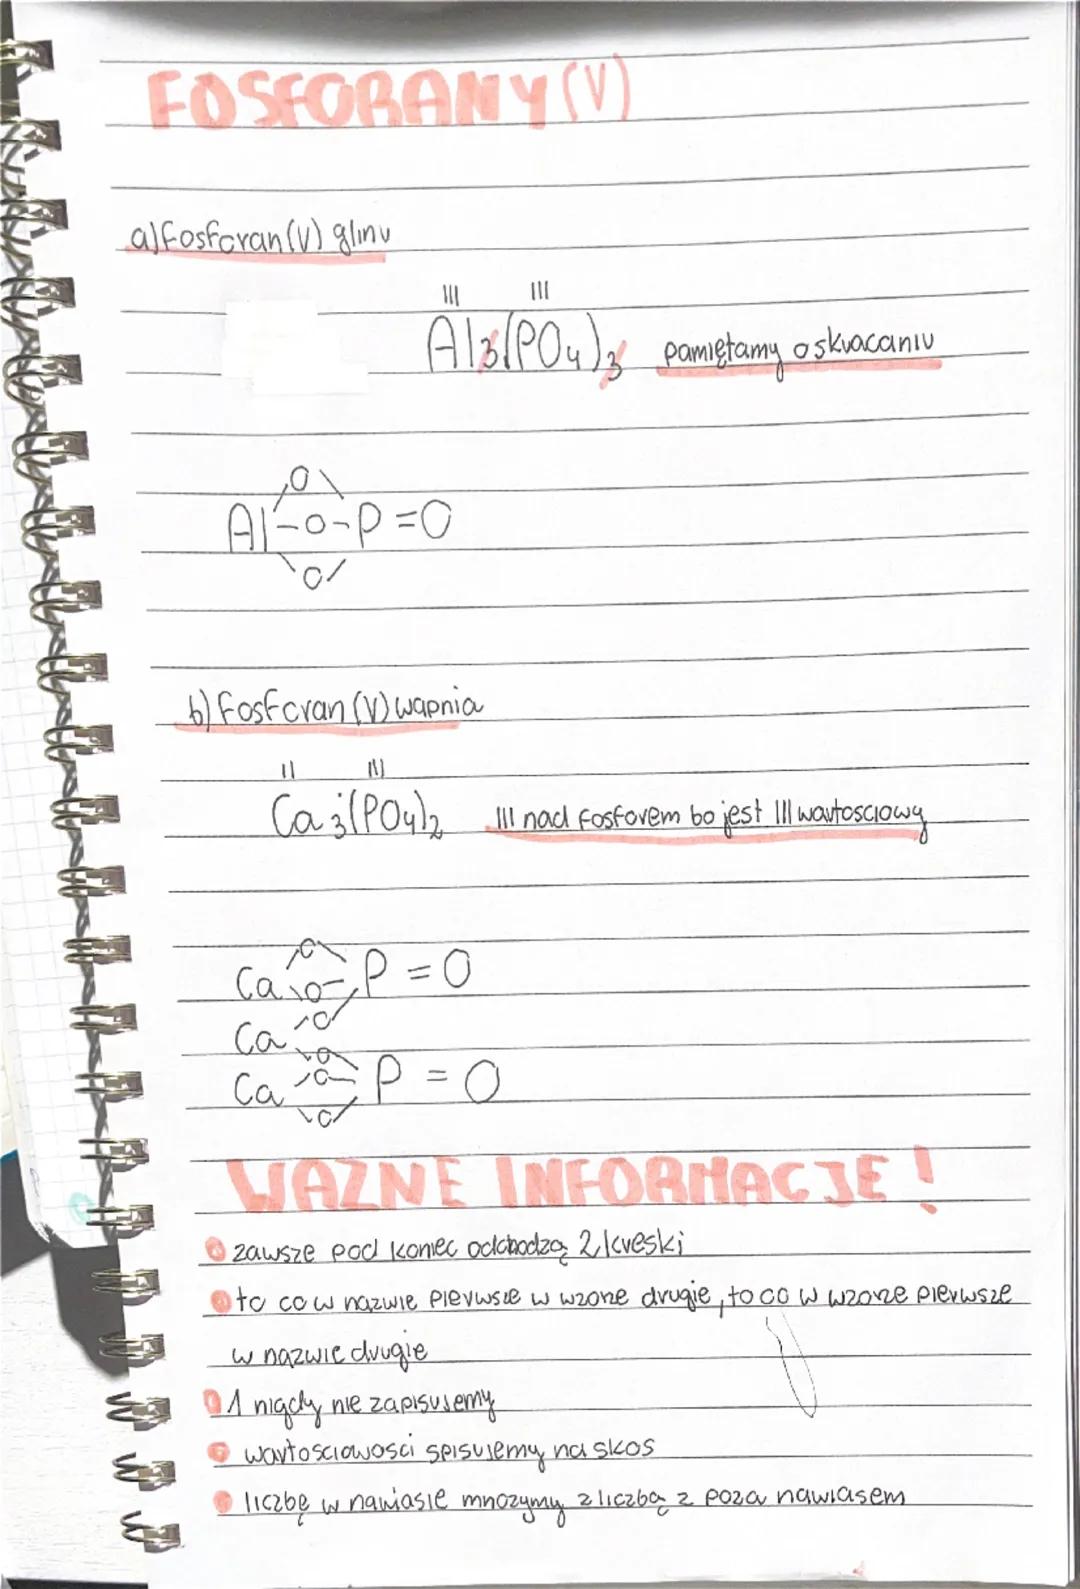 FOSFORANY (V)
a) fosforan (V) glinu
III III
Al3(PO4)3 pamiętamy o skracaniu
O
Al-O-P=O
O
b) fosforan (V) wapnia
II III
Ca3(PO4)2 III nad fosforem bo jest III wartosciowy
O
Ca O P = O
Ca O
O
Ca O P = O
O
WAZNE INFORMACJE!
zawsze pod koniec odchodzą 2 kreski
to co w nazwie pierwsze w wzorze drugie, to co w wzorze pierwsze
w nazwie drugie
1 nigdy nie zapisujemy
wartosciowosci spisujemy na skos
liczbę w nawiasie mnozymy z liczbą z poza nawiasem